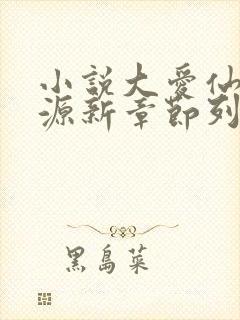 小說大愛仙
源新章節列
黑島菜